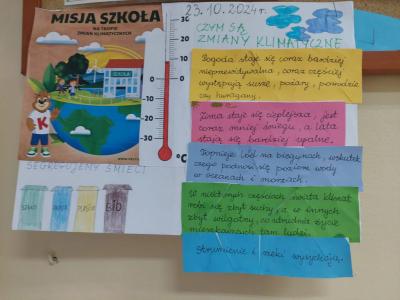 MISJA SZKOŁA
NA TROPIE
ZMIAN KLIMATYCZNYCH
SZKOŁA
K
SEGREGUJEMY ŚMIECI
SZKŁO
PAPIER
BIO
30
20
10
0
10
20
30
°C
23.10.2024r.
CZYM SĄ
ZMIANY KLIMATYCZNE
Pogoda staje się coraz bardziej
nieprzewidywalna, coraz częściej
występują susze, pożary, powodzie
czy huragany.
Zima staje się cieplejsza, jest
coraz mniej śniegu, a lata
stają się bardziej upalne.
Topnieje lód na biegunach, wskutek
czego podnosi się poziom wody
w oceanach i morzach.
W niektórych częściach świata klimat
robi się zbyt suchy, a w innych
zbyt wilgotny, co utrudnia życie
mieszkańcom tam ludzi.
Strumienie i rzeki wysychają.